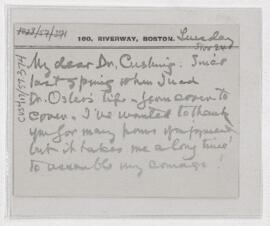 160, RIVERWAY, BOSTON.
Tuesday
Nov 24
CUS417/57.374
My dear Dr. Cushing. Since
last Spring when I read
Dr. Osler's Life – from cover to
cover – I've wanted to thank
you for many hours of enjoyment
but it takes me a long time
to assemble my courage!